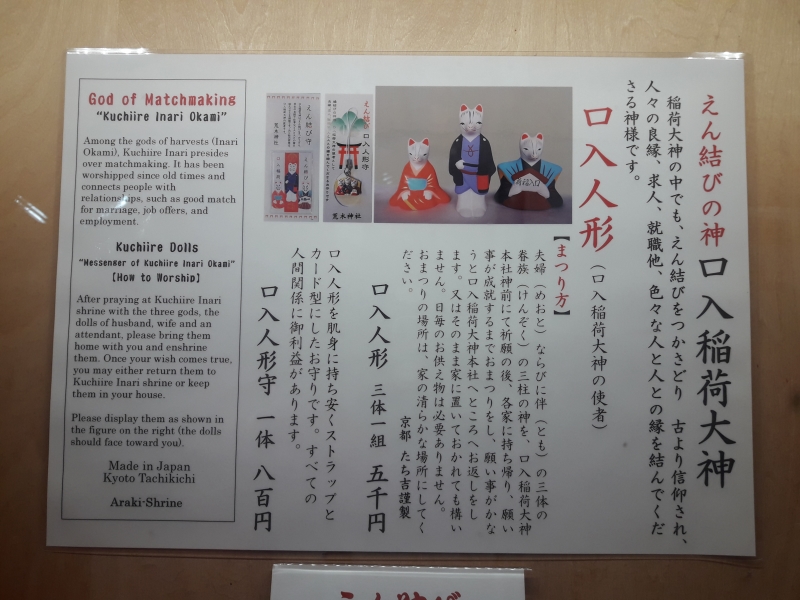 God of Matchmaking
"Kuchiire Inari Okami"
Among the gods of harvests (Inari
Okami), Kuchiire Inari presides
over matchmaking. It has been
worshipped since old times and
connects people with
relationships, such as good match
for marriage, job offers, and
employment.
Kuchiire Dolls
"Messenger of Kuchiire Inari Okami"
【How to Worship】
After praying at Kuchiire Inari
shrine with the three gods, the
dolls of husband, wife and an
attendant, please bring them
home with you and enshrine
them. Once your wish comes true,
you may either return them to
Kuchiire Inari shrine or keep
them in your house.
Please display them as shown in
the figure on the right (the dolls
should face toward you).
Made in Japan
Kyoto Tachikichi
Araki-Shrine
えん結びの神 口入稲荷大神
稲荷大神の中でも、えん結びをつかさどり 古より信仰され、
人々の良縁、求人、就職他、色々な人と人との縁を結んでくだ
さる神様です。
口入人形（口入稲荷大神の使者）
【まつり方】
夫婦（めおと）ならびに伴（とも）の三体の
眷族（けんぞく）の三柱の神を、口入稲荷大神
本社神前にて祈願の後、各家に持ち帰り、願い
事が成就するまでおまつりをし、願い事がかな
うと口入稲荷大神本社へところへお返しをし
ます。又はそのまま家に置いておかれても構い
ません。日毎のお供え物は必要ありません。
おまつりの場所は、家の清らかな場所にしてく
ださい。
京都 たち吉謹製
口入人形 三体一組 五千円
口入人形を肌身に持ち安くストラップと
カード型にしたお守りです。すべての
人間関係に御利益があります。
口入人形守 一体 八百円
えん結び 口入人形守
荒木神社
えん結び守
荒木神社
えん結び